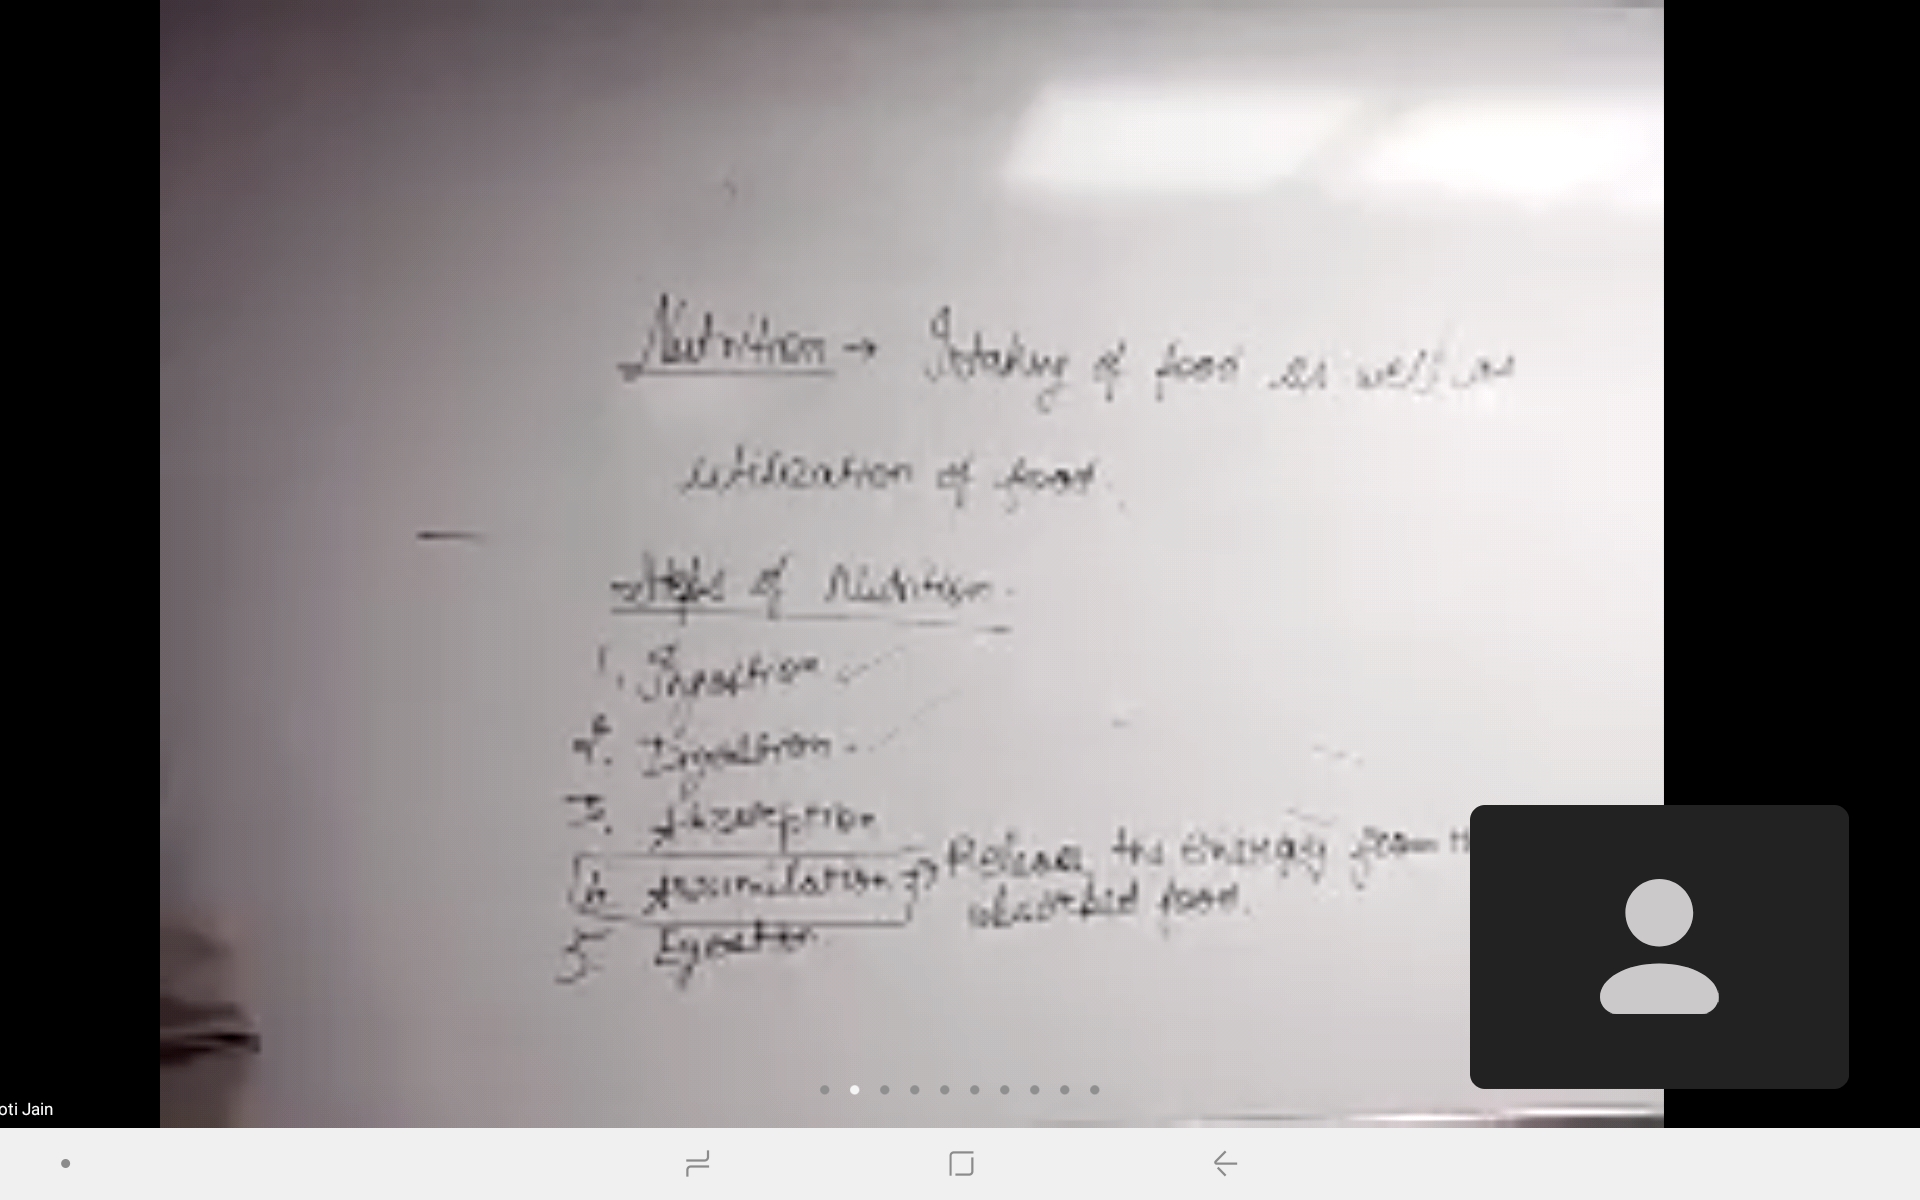 Nutrition → Intaking of food as well as
utilization of food.
Steps of Nutrition.
1. Ingestion
2. Digestion
3. Absorption
4. Assimilation → Release the energy from
absorbed food.
5. Egestion
oti Jain